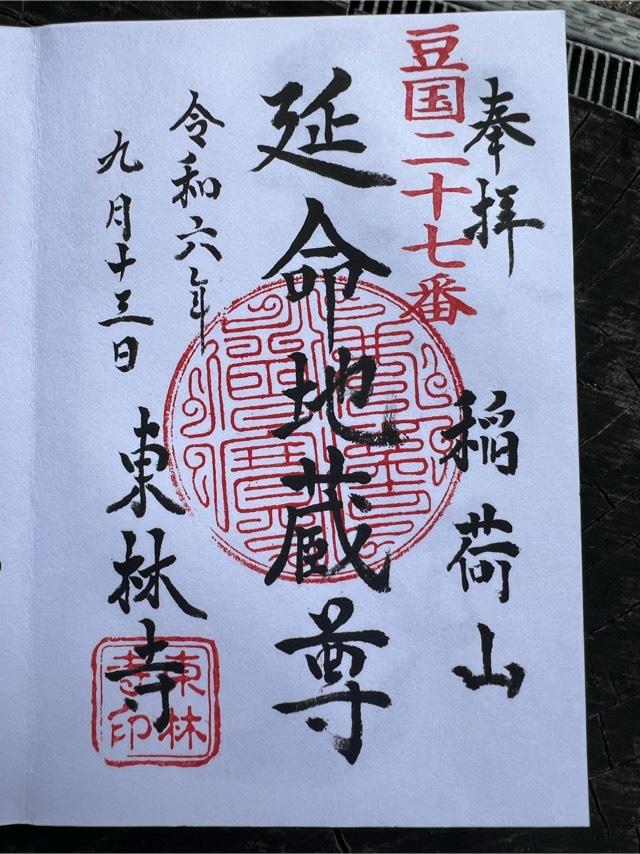 奉拝
稲荷山
豆国二十七番
延命地蔵尊
令和六年
九月十三日
東林寺
東林寺印